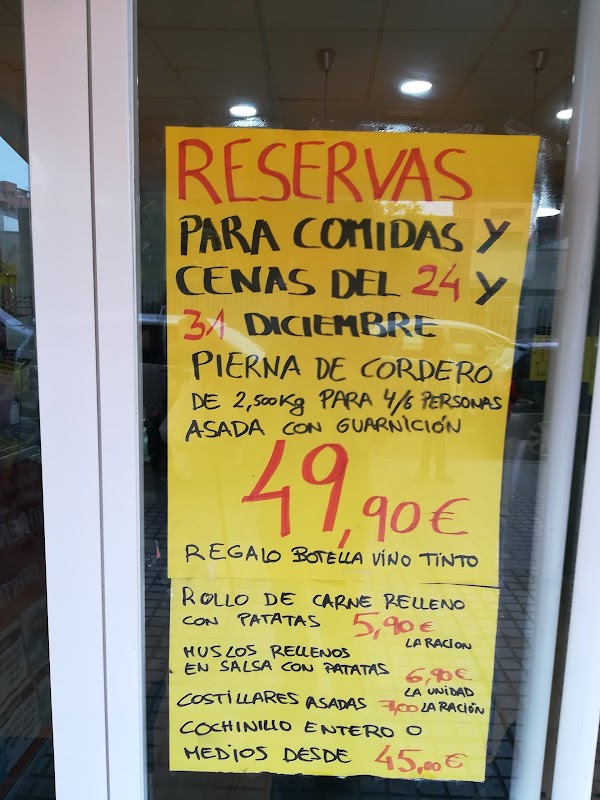 RESERVAS
PARA COMIDAS Y
CENAS DEL 24 Y
31 DICIEMBRE
PIERNA DE CORDERO
DE 2,500Kg PARA 4/6 PERSONAS
ASADA CON GUARNICIÓN
49,90 €
REGALO BOTELLA VINO TINTO
ROLLO DE CARNE RELLENO
CON PATATAS 5,90 €
LA RACION
MUSLOS RELLENOS
EN SALSA CON PATATAS 6,90 €
LA UNIDAD
COSTILLARES ASADAS 7,00 LA RACIÓN
COCHINILLO ENTERO O
MEDIOS DESDE 45,00 €